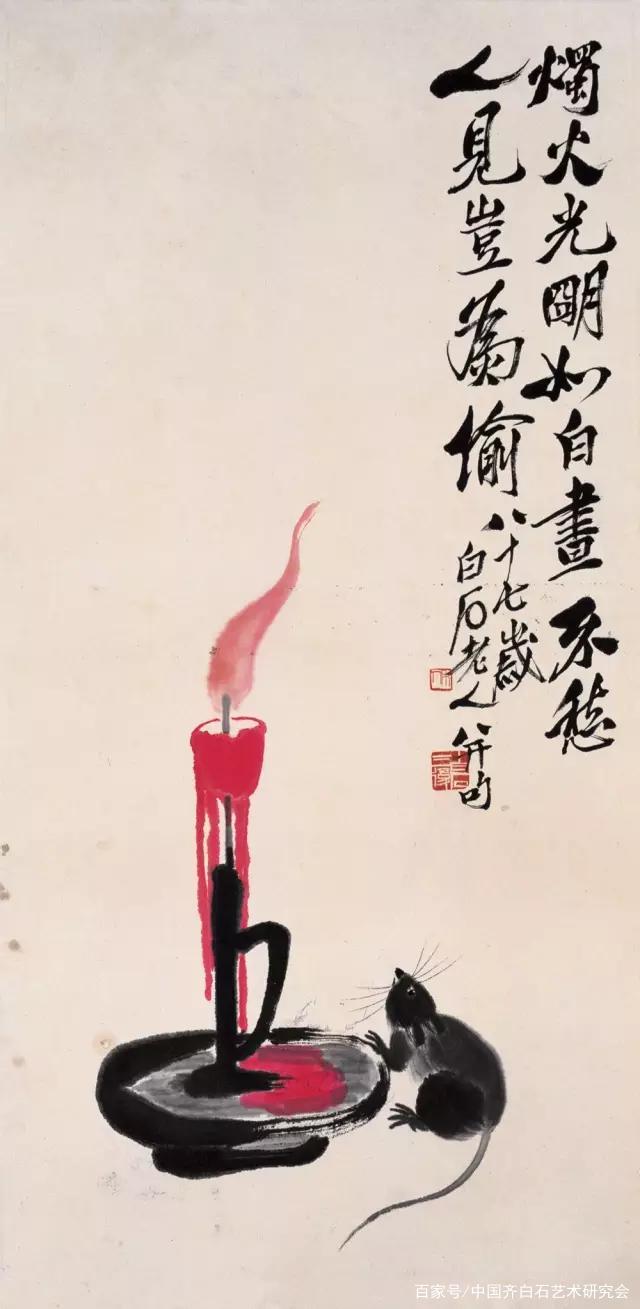 燭火光明如白晝不愁
人見豈為偷
八十七歲
白石老人并句
百家号/中国齐白石艺术研究会